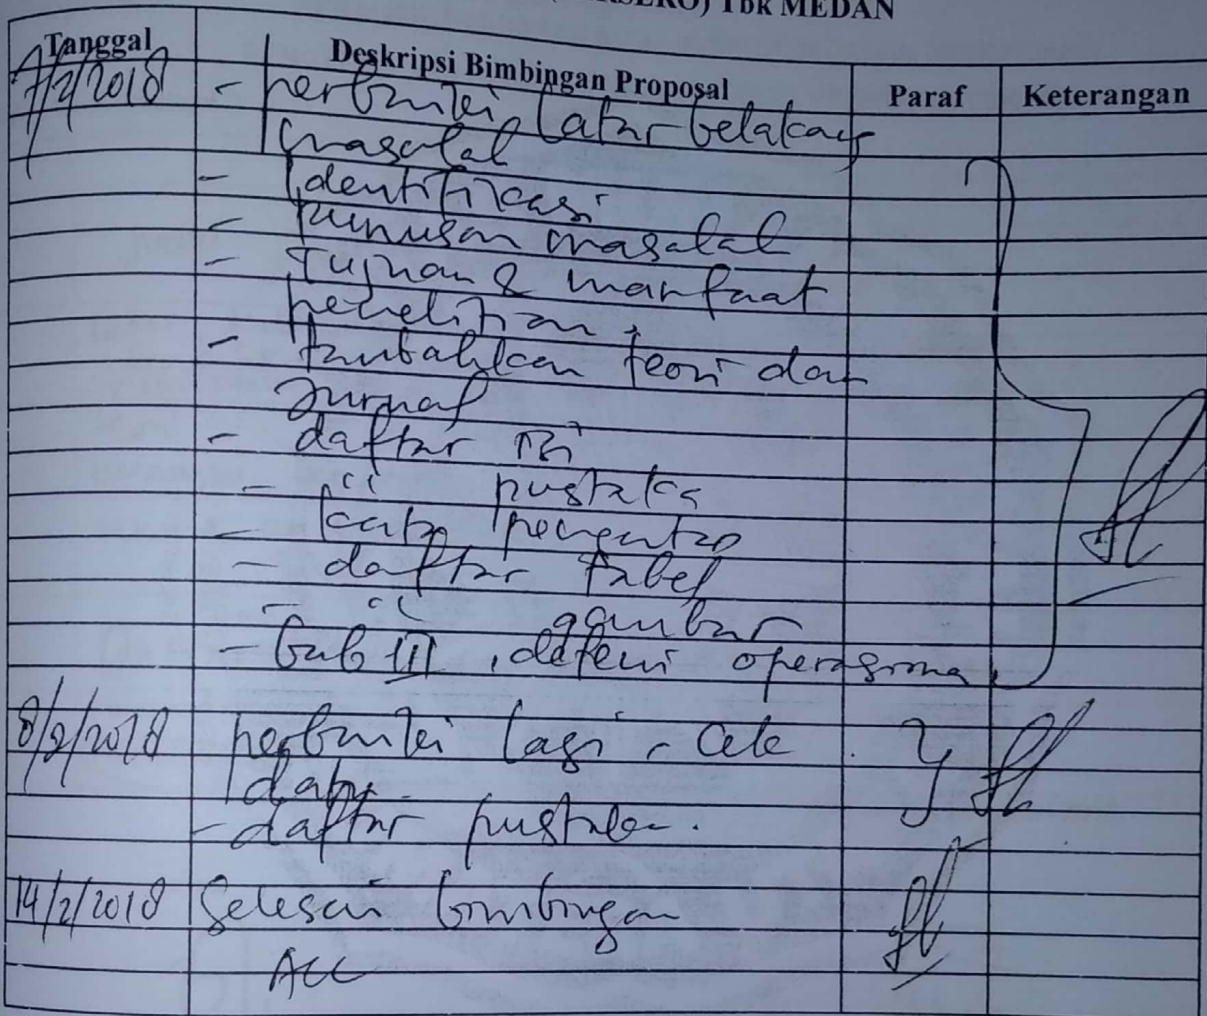 (PERSERO) Tbk MEDAN
Tanggal Deskripsi Bimbingan Proposal Paraf Keterangan
7/2/2018 - perbaiki latar belakang
masalah
- Identifikasi
- rumusan masalah
- Tujuan & manfaat
penelitian,
- tambahkan teori dan
Jurnal
- daftar isi
- " pustaka
- kata pengantar
- daftar tabel
- " gambar
- bab III, defeni operasiona
8/2/2018 perbaiki lagi, cek
daftar pustaka.
14/2/2018 Selesai bimbingan
ACC